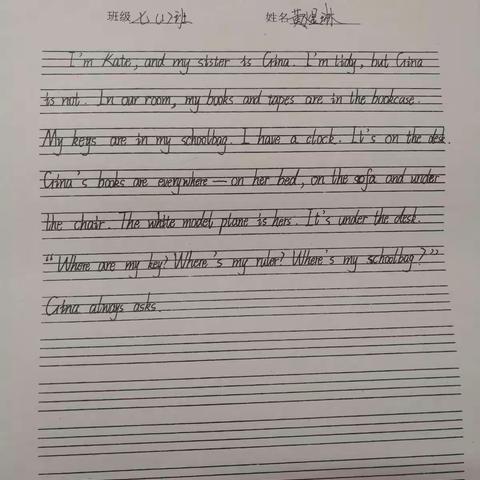 班级 七(1)班 姓名 黄煜琳
I'm Kate, and my sister is Gina. I'm tidy, but Gina
is not. In our room, my books and tapes are in the bookcase.
My keys are in my schoolbag. I have a clock. It's on the desk.
Gina's books are everywhere — on her bed, on the sofa and under
the chair. The white model plane is hers. It's under the desk.
"Where are my key? Where's my ruler? Where's my schoolbag?"
Gina always asks.